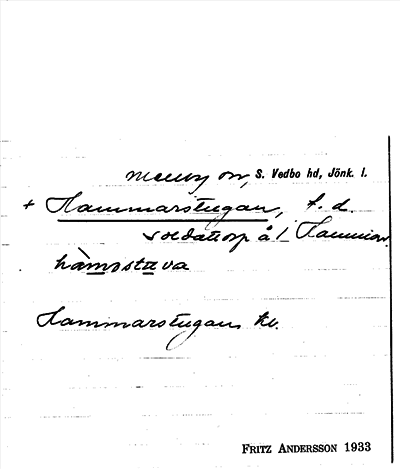 S. Vedbo hd, Jönk. l.
+ Hammarstugan, f. d.
soldattorp å 1 Hammar.
hàmostuva
Hammarstugan hv.
FRITZ ANDERSSON 1933